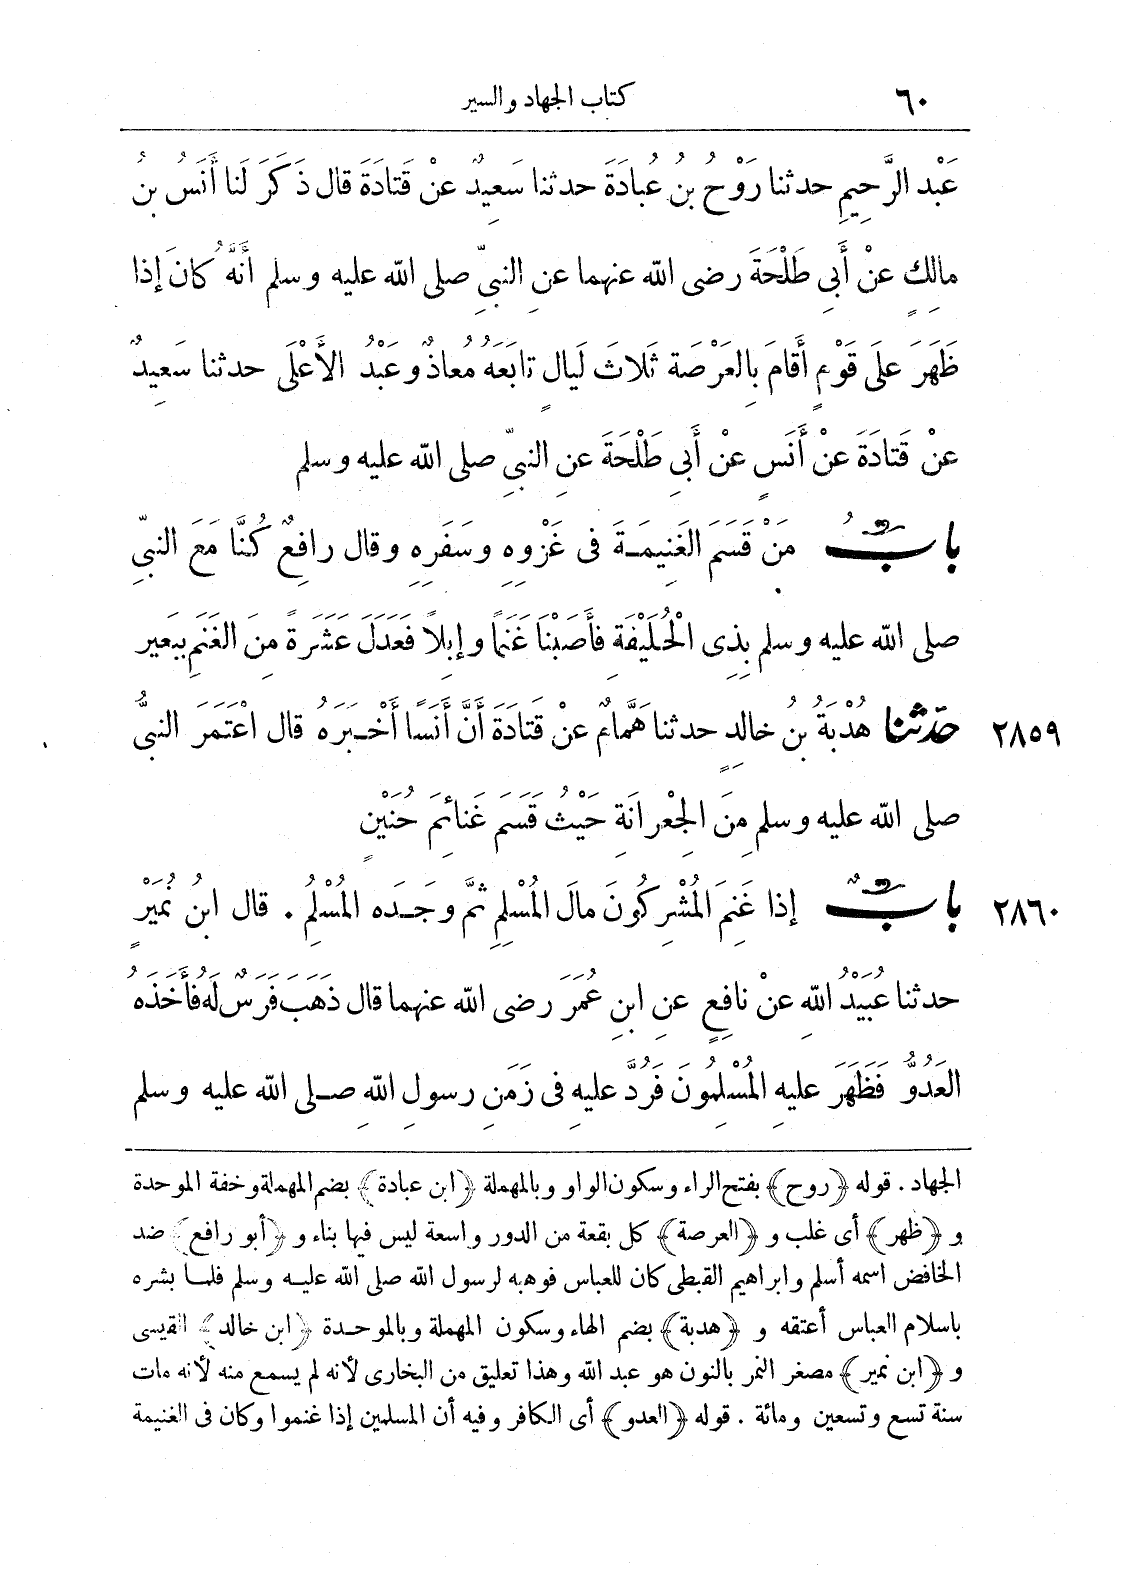 ٦٠ كتاب الجهاد والسير
عَبْد الرَّحِيمِ حدثنا رَوْحُ بنُ عُبادَةَ حدثنا سَعِيدٌ عنْ قَتادَةَ قال ذَكَرَ لَنا أَنَسُ بنُ
مالِكٍ عنْ أَبِى طَلْحَةَ رضى الله عنهما عنِ النبىِّ صلى الله عليه وسلم أنَّهُ كانَ إذا
ظَهَرَ علَى قَوْمٍ أَقامَ بِالعَرْصَةِ ثَلاثَ لَيالٍ تابَعَهُ مُعاذٌ وعَبْدُ الأَعْلَى حدثنا سَعِيدٌ
عنْ قَتادَةَ عنْ أَنَسٍ عنْ أَبِى طَلْحَةَ عنِ النبىِّ صلى الله عليه وسلم
بابُ مَنْ قَسَمَ الغَنِيمَةَ فى غَزْوِهِ وسَفَرِهِ وقال رافِعٌ كُنَّا مَعَ النبىِّ
صلى الله عليه وسلم بِذِى الْحُلَيْفَةِ فأَصَبْنَا غَنَماً وإبِلاً فَعَدَلَ عَشَرَةً مِنَ الغَنَمِ بِبَعير
٢٨٥٩ حَدَّثَنا هُدْبَةُ بنُ خالِدٍ حدثنا هَمَّامٌ عنْ قَتادَةَ أَنَّ أَنَسًا أَخْبَرَهُ قال اعْتَمَرَ النبىُّ
صلى الله عليه وسلم مِنَ الجِعْرانَةِ حَيْثُ قَسَمَ غَنائِمَ حُنَيْنٍ
٢٨٦٠ بابٌ إذا غَنِمَ المُشْرِكُونَ مالَ المُسْلِمِ ثمَّ وجَدَه المُسْلِمُ . قال ابنُ نُمَيْرٍ
حدثنا عُبَيْدُ اللهِ عنْ نافِعٍ عنِ ابنِ عُمَرَ رضى الله عنهما قال ذَهَبَ فَرَسٌ لَهُ فأَخَذَهُ
العَدُوُّ فَظَهَرَ عليهِ المُسْلِمُونَ فَرُدَّ عليهِ فى زَمَنِ رسولِ اللهِ صلى الله عليه وسلم
الجهاد . قوله ﴿روح﴾ بفتح الراء وسكون الواو وبالمهملة ﴿ابن عبادة﴾ بضم المهملة وخفة الموحدة
و ﴿ظهر﴾ أى غلب و ﴿العرصة﴾ كل بقعة من الدور واسعة ليس فيها بناء و ﴿أبو رافع﴾ ضد
الخافض اسمه أسلم وابراهيم القبطى كان للعباس فوهبه لرسول الله صلى الله عليه وسلم فلما بشره
باسلام العباس أعتقه و ﴿هدبة﴾ بضم الهاء وسكون المهملة وبالموحدة ﴿ابن خالد﴾ القيسى
و ﴿ابن نمير﴾ مصغر النمر بالنون هو عبد الله وهذا تعليق من البخارى لأنه لم يسمع منه لأنه مات
سنة تسع وتسعين ومائة . قوله ﴿العدو﴾ أى الكافر وفيه أن المسلمين إذا غنموا وكان فى الغنيمة